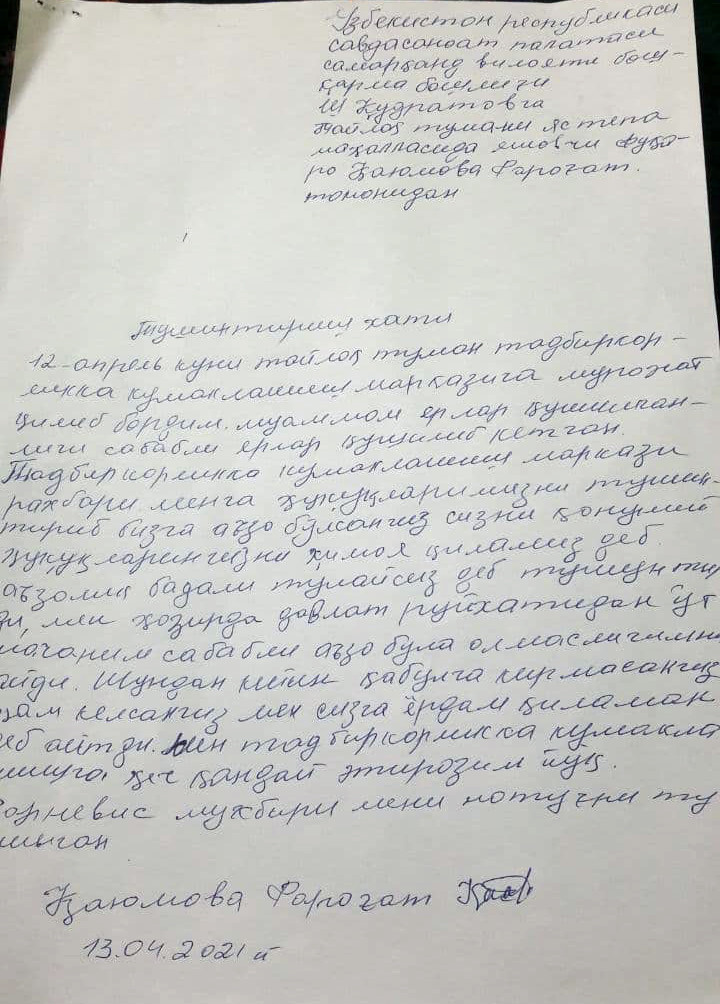 Ўзбекистон республикаси
савдасаноат палатаси
самарқанд вилояти бош-
қарма бошлиғи
Ш Қудратовга
Тойлоқ тумани яс тепа
маҳалласида яшовчи фуқа-
ро Қаюмова Фароғат.
томонидан
Тушинтириш хати
12-апрель куни тайлоқ туман тадбиркор-
ликка кумаклашиш марказига мурожат
қилиб бордим. муаммом ерлар қушилган-
лиги сабабли ерлар қушилиб кетган.
Тадбиркорликка кумаклашиш маркази
рахбари менга ҳуқуқларимизни тушин-
тириб бизга аъзо бўлсангиз сизни қонуний
ҳуқуқларингизни ҳимоя қиламиз деб.
аъзолик бадали тулайсиз деб тушунтир
ди, мен ҳозирда давлат руйхатидан ўт
маганим сабабли аъзо була олмаслигимни
айди. Шундан кейин қабулга кирмасангиз
ҳам келсангиз мен сизга ёрдам қиламан
деб айтди. Мен тадбиркорликка кумакла
шишга ҳеч қандай этирозим йуқ.
мухбири мени нотугри ту
шинган
Қаюмова Фароғат
13.04.2021 й